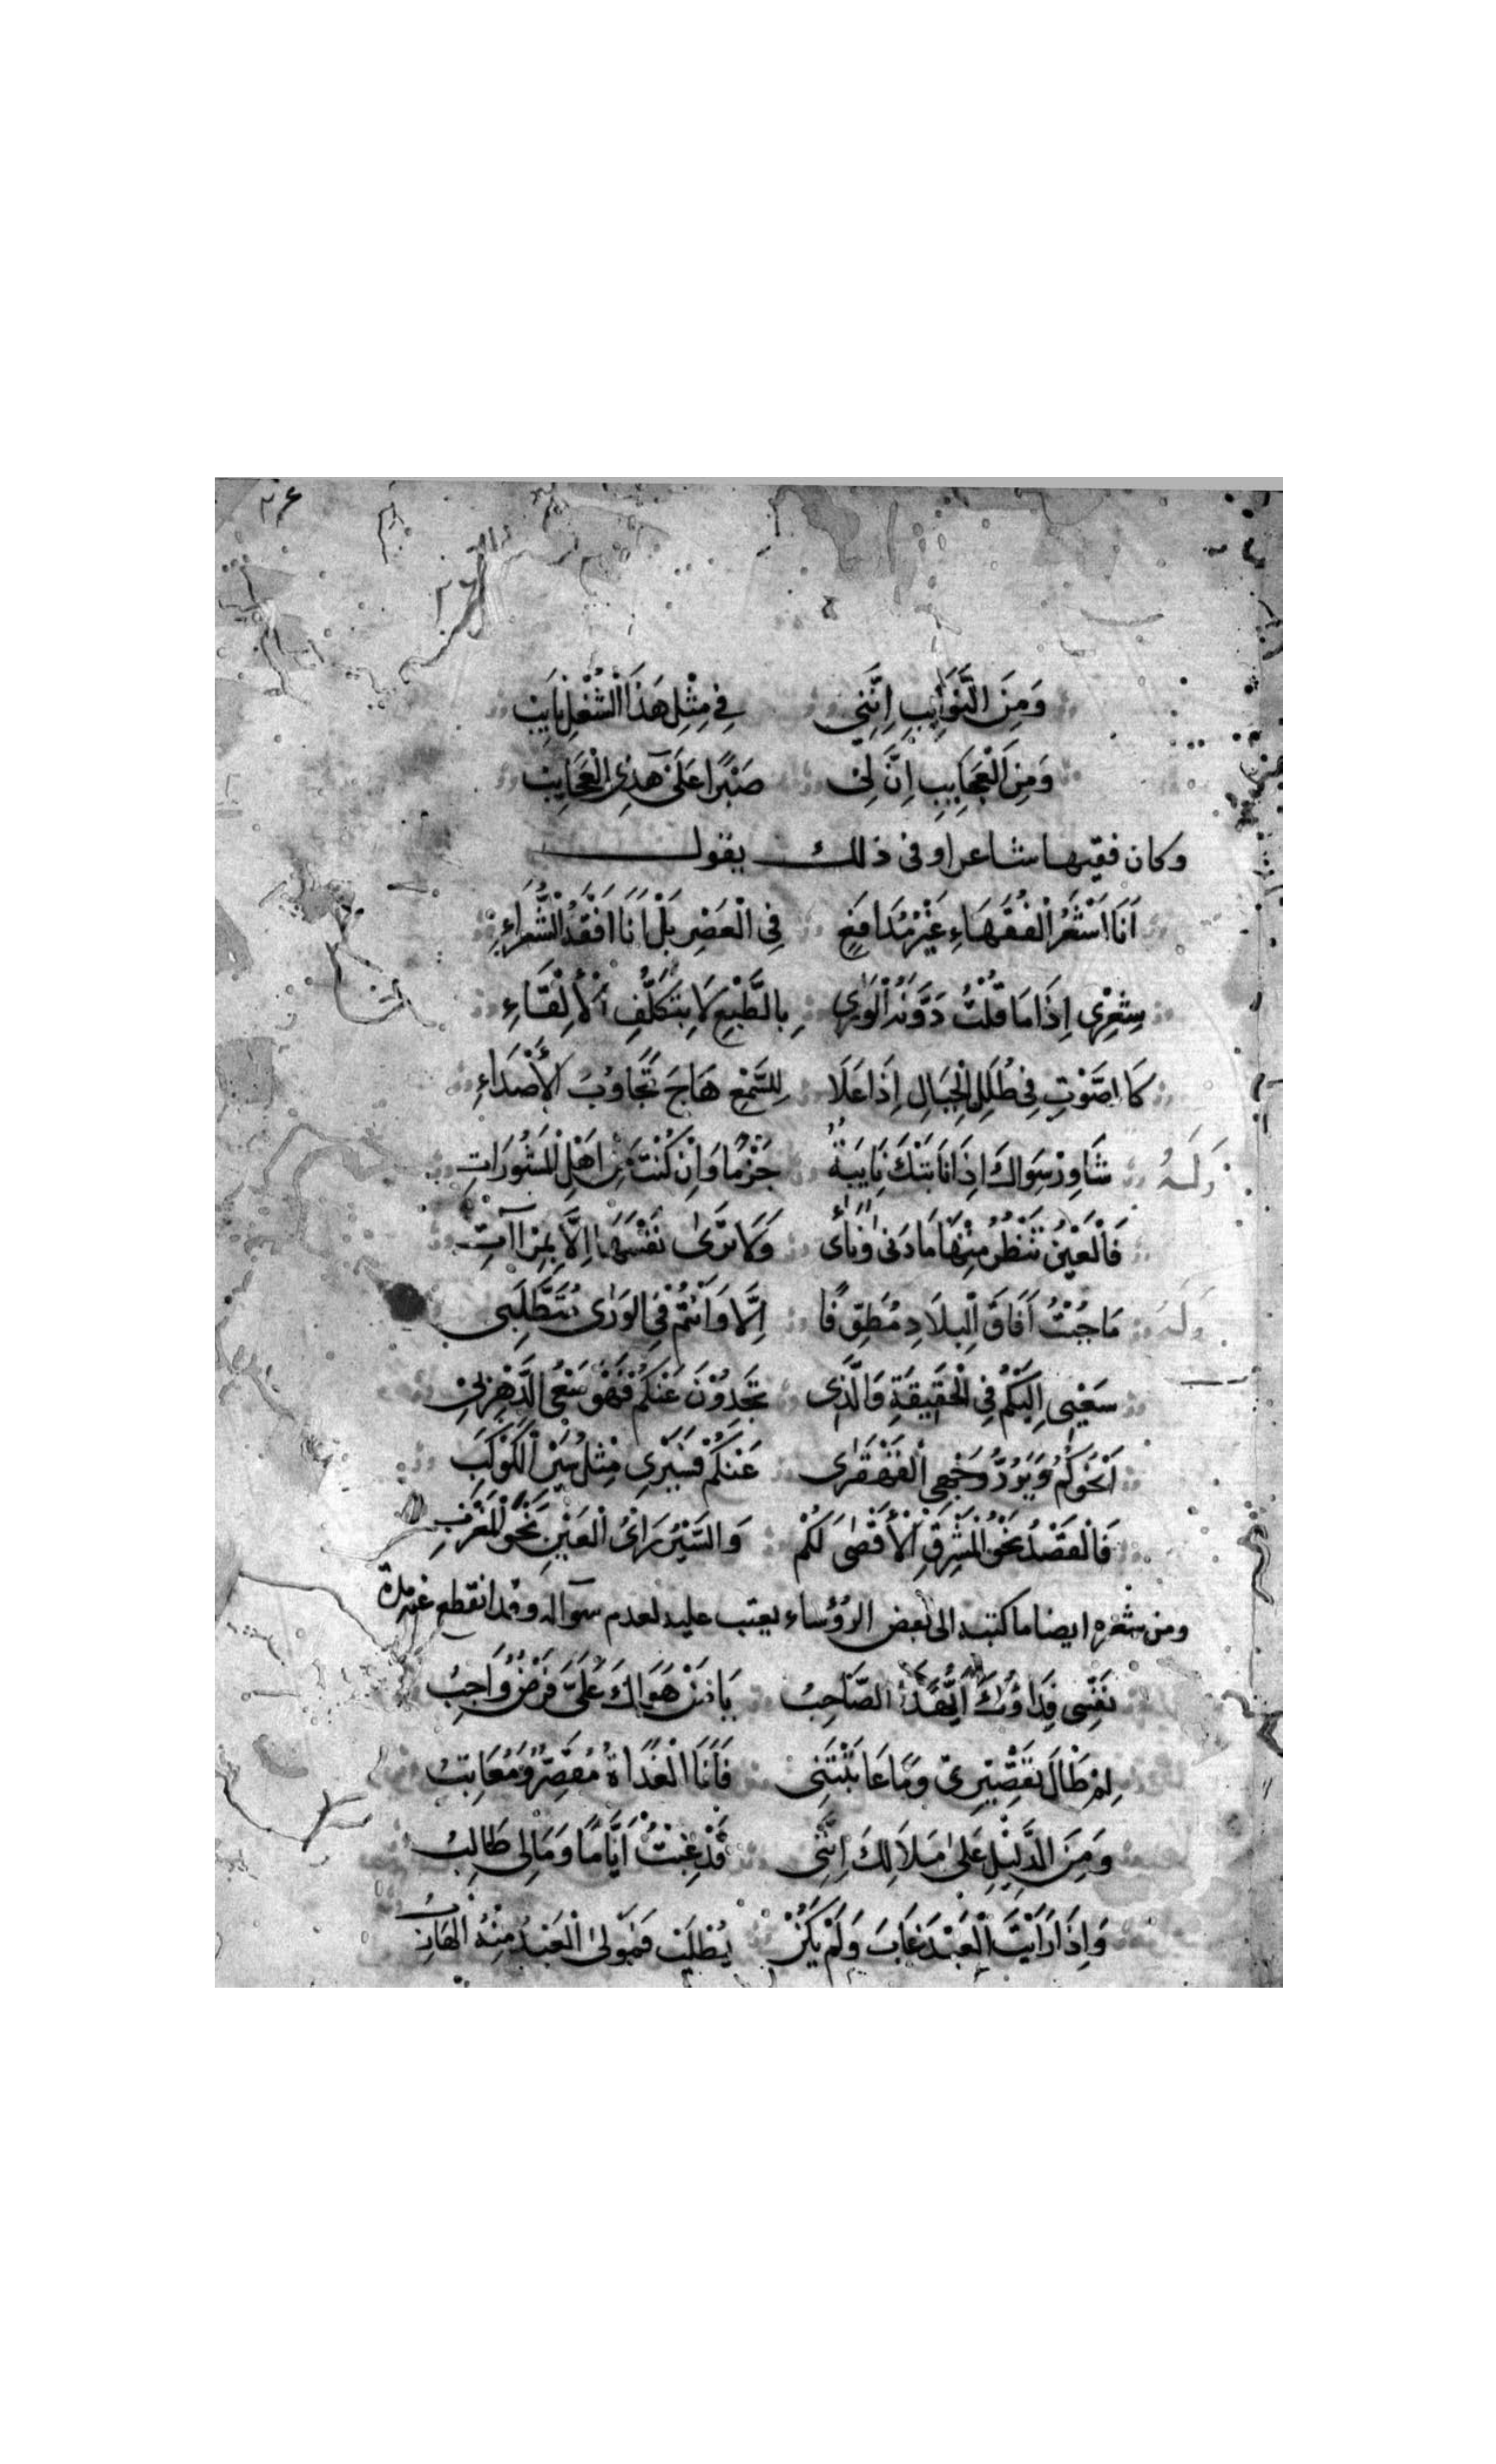 ٢٦
٢٦
وَمِنَ النَّوَايِبِ اِنَّنِي فِي مِثْلِ هَذَا الشُّغْلِ نَايِبْ
وَمِنَ الْعَجَايِبِ اِنَّ لِيْ صَبْرًا عَلَىْ هَذِيْ الْعَجَايِبْ
وكان فقيها شاعرا وفى ذلك يقول
اَنَا اَشْعَرُ الْفُقَهَاءِ غَيْرَ مُدَافَعٍ فِي الْعَصْرِ بَلْ اَنَا اَفْقَهُ الشُّعَرَاءِ
شِعْرِيْ اِذَا مَا قُلْتُ دَوَّنَهُ الْوَرَى بِالطَّبْعِ لَا بِتَكَلُّفِ الْأِلْقَاءِ
كَا الصَّوْتِ فِي ظُلَلِ الْجِبَالِ اِذَا عَلَا لِلسَّمْعِ هَاجَ تَجَاوُبَ الْأَصْدَاءِ
وَلَهُ شَاوِرْ سِوَاكَ اِذَا نَابَتْكَ نَايِبَةٌ وَاِنْ كُنْتَ مِنْ اَهْلِ الْمَشُورَاتِ
فَالْعَيْنُ تَنْظُرُ مِنْهَا مَا دَنَى وَنَأَى وَلَا تَرَىْ نَفْسَهَا اِلَّا بِمِرْاآتِ
وَلَهُ مَا جُبْتُ آفَاقَ الْبِلَادِ مُطَوِّفًا اِلَّا وَاَنْتُمْ فِي الْوَرَى مُتَطَلَّبِى
سَعْيِى اِلَيْكُمْ فِي الْحَقِيْقَةِ وَالَّذِى تَجِدُوْنَ عَنْكُمْ فَهْوَ سَعْىُ الدَّهْرِ بِيْ
اَنْحُوكُمُ وَيَرُدُّ وَجْهِي الْقَهْقَرَى عَنْكُمْ فَسَيْرِي مِثْلُ سَيْرِ الْكَوْكَبِ
فَالْقَصْدُ نَحْوَ الْمَشْرِقِ الْأَقْصَى لَكُمْ وَالسَّيْرُ رَأْىُ الْعَيْنِ نَحْوَ الْمَغْرِبِ
ومن شعره ايضا ما كتبه الى بعض الرؤساء يعتب عليه لعدم سواله وقد انقطع عنه مدة
نَفْسِى فِدَاؤُكَ اَيُّهَذَا الصَّاحِبُ يَا مَنْ هَوَاكَ عَلَىَّ فَرْضٌ وَاجِبُ
لِمْ طَالَ تَقْصِيْرِىْ وَمَا عَاتَبْتَنِى فَاَنَا الْغَدَاةَ مُقَصِّرٌ وَمُعَاتِبُ
وَمِنَ الدَّلِيْلِ عَلَى مَلَالِكَ اِنَّنِى قَدْ غِبْتُ اَيَّامًا وَمَا لِى طَالِبُ
وَاِذَا رَاَيْتَ الْعَبْدَ غَابَ وَلَمْ يَكُنْ يُطْلَبْ فَمَوْلَى الْعَبْدِ مِنْهُ الْهَارِبُ